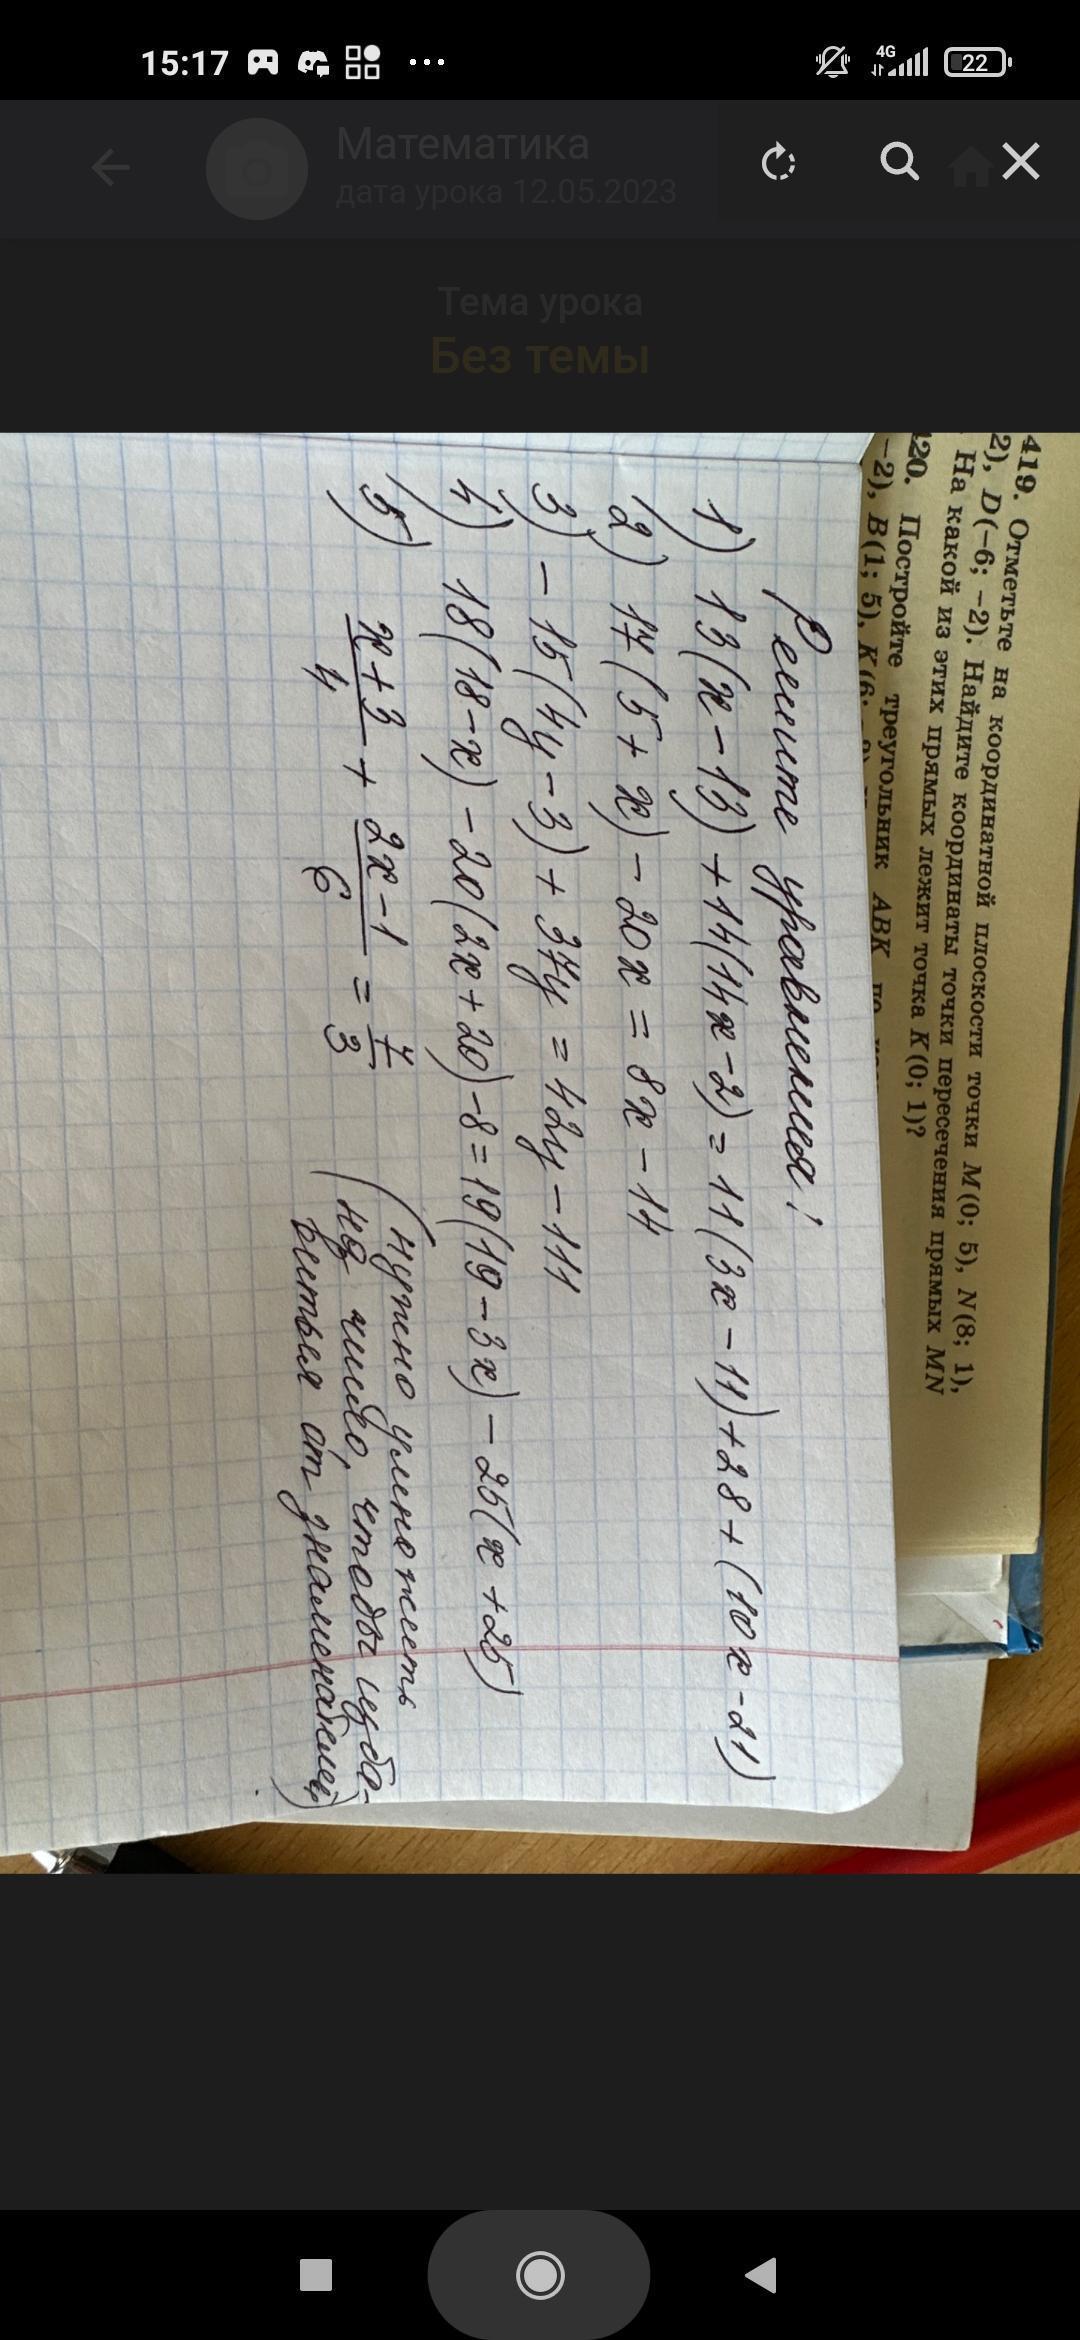 15:17
4G
22
Математика
дата урока 12.05.2023
Тема урока
Без темы
419. Отметьте на координатной плоскости точки M(0; 5), N(8; 1),
2), D(−6; −2). Найдите координаты точки пересечения прямых MN
На какой из этих прямых лежит точка K(0; 1)?
20. Постройте треугольник ABK по
−2), B(1; 5), K(6;
Решите уравнения:
1) 13(x−13)+14(14x−2)=11(3x−11)+28+(10x−21)
2) 17(5+x)−20x=8x−14
3) −15(4y−3)+37y=42y−111
4) 18(18−x)−20(2x+20)−8=19(19−3x)−25(x+25)
5) x+3/4 + 2x−1/6 = 7/3 (нужно умножить
на число, чтобы изба-
виться от знаменателей)